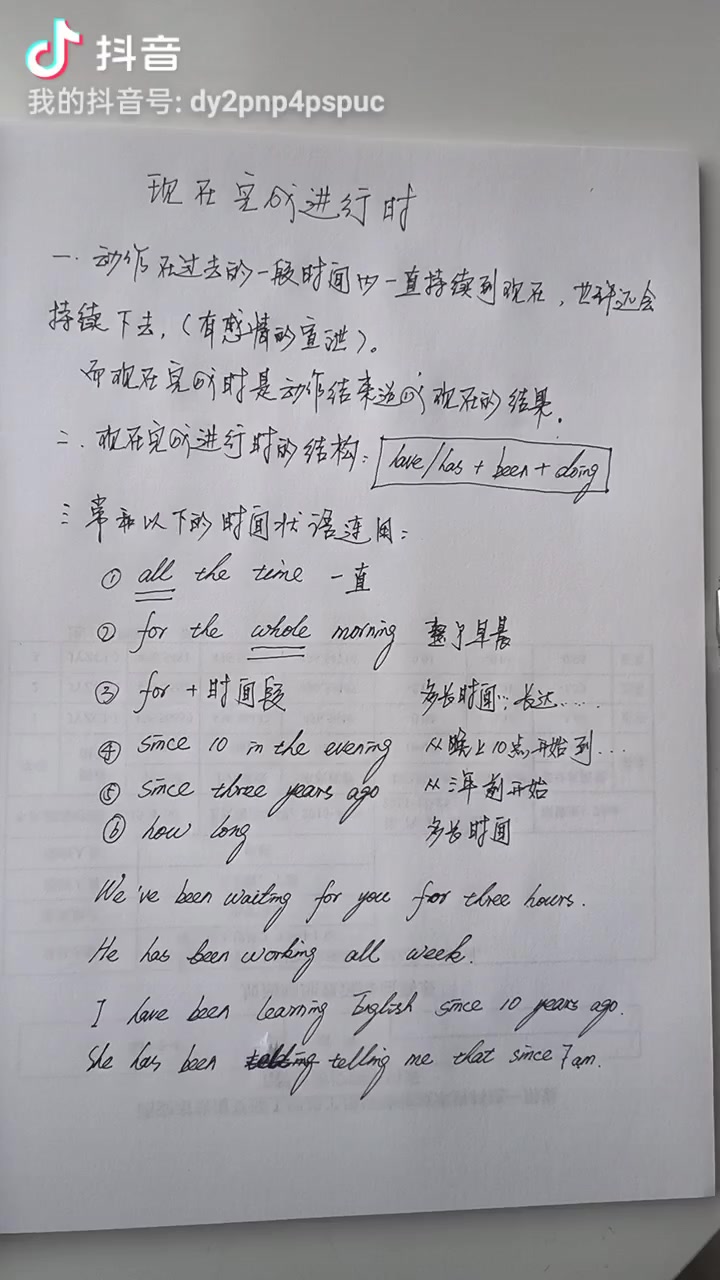 抖音
我的抖音号: dy2pnp4pspuc
现在完成进行时
一. 动作在过去的一段时间内一直持续到现在, 也许还会
持续下去, (有感情的宣泄)。
而现在完成时是动作结束造成现在的结果.
二. 现在完成进行时的结构: have/has + been + doing
三 常和以下的时间状语连用:
① all the time 一直
② for the whole morning 整个早晨
③ for + 时间段 多长时间; 长达......
④ since 10 in the evening 从晚上10点开始到...
⑤ since three years ago 从三年前开始
⑥ how long 多长时间
We've been waiting for you for three hours.
He has been working all week.
I have been learning English since 10 years ago.
She has been telling me that since 7 am.